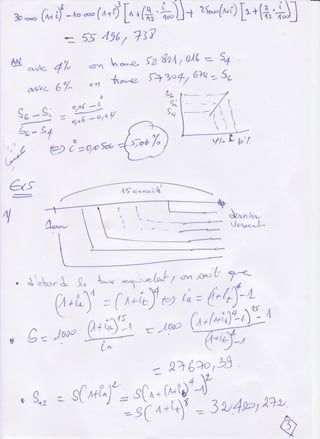 30.000 (1+i)^4 - 10.000 (1+i)^3 [1 + (4/12 · i/100)] + 25000 (1+i) [1 + (3/12 · i/100)]
= 55 196, 738
AN avec 4% on trouve 52 821, 016 = S4
avec 6% on trouve 57 304, 674 = S6
(S6 - Si)/(S6 - S4) = (0,06 - i)/(0,06 - 0,04)
S6
Si
S4
4% i 6%
⇔ i = 0,0506 = 5,06%
Ex5
15 annuité
1/
1000
dernier
versement
• d'abord le taux equivalent, on sait que
(1+ia)^1 = (1+it)^4 ⇔ ia = (1+it)^4 - 1
• S = 1000 ((1+ia)^15 - 1)/ia = 1000 ((1+(1+it)^4 - 1)^15 - 1)/((1+it)^4 - 1)
= 27670, 39
• S12 = S(1+ia)^2 = S(1+(1+it)^4 - 1)^2
= S(1+it)^8 = 32420, 272
3